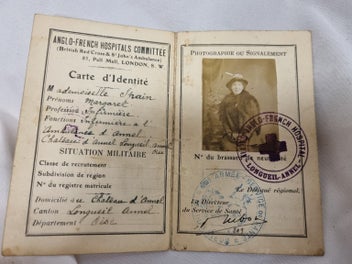 ANGLO-FRENCH HOSPITALS COMMITTEE
(British Red Cross & St John's Ambulance)
87, Pall Mall, LONDON, S. W
Carte d'Identité
Mademoiselle Thain
Prénoms Margaret
Profession Infirmière
Fonctions Infirmière à l'
Ambulance d'Annel
Château d'Annel, Longueil Annel, Oise
SITUATION MILITAIRE
Classe de recrutement
Subdivision de region
Nº du registre matricule
Domicilié à Château d'Annel
Canton Longueil Annel
Département Oise
PHOTOGRAPHIE OU SIGNALEMENT
ANGLO-FRENCH HOSPITAL
LONGUEIL-ANNEL
Nº du brassard de neutralité
Le Délégué régional
Le Directeur
du Service de Santé